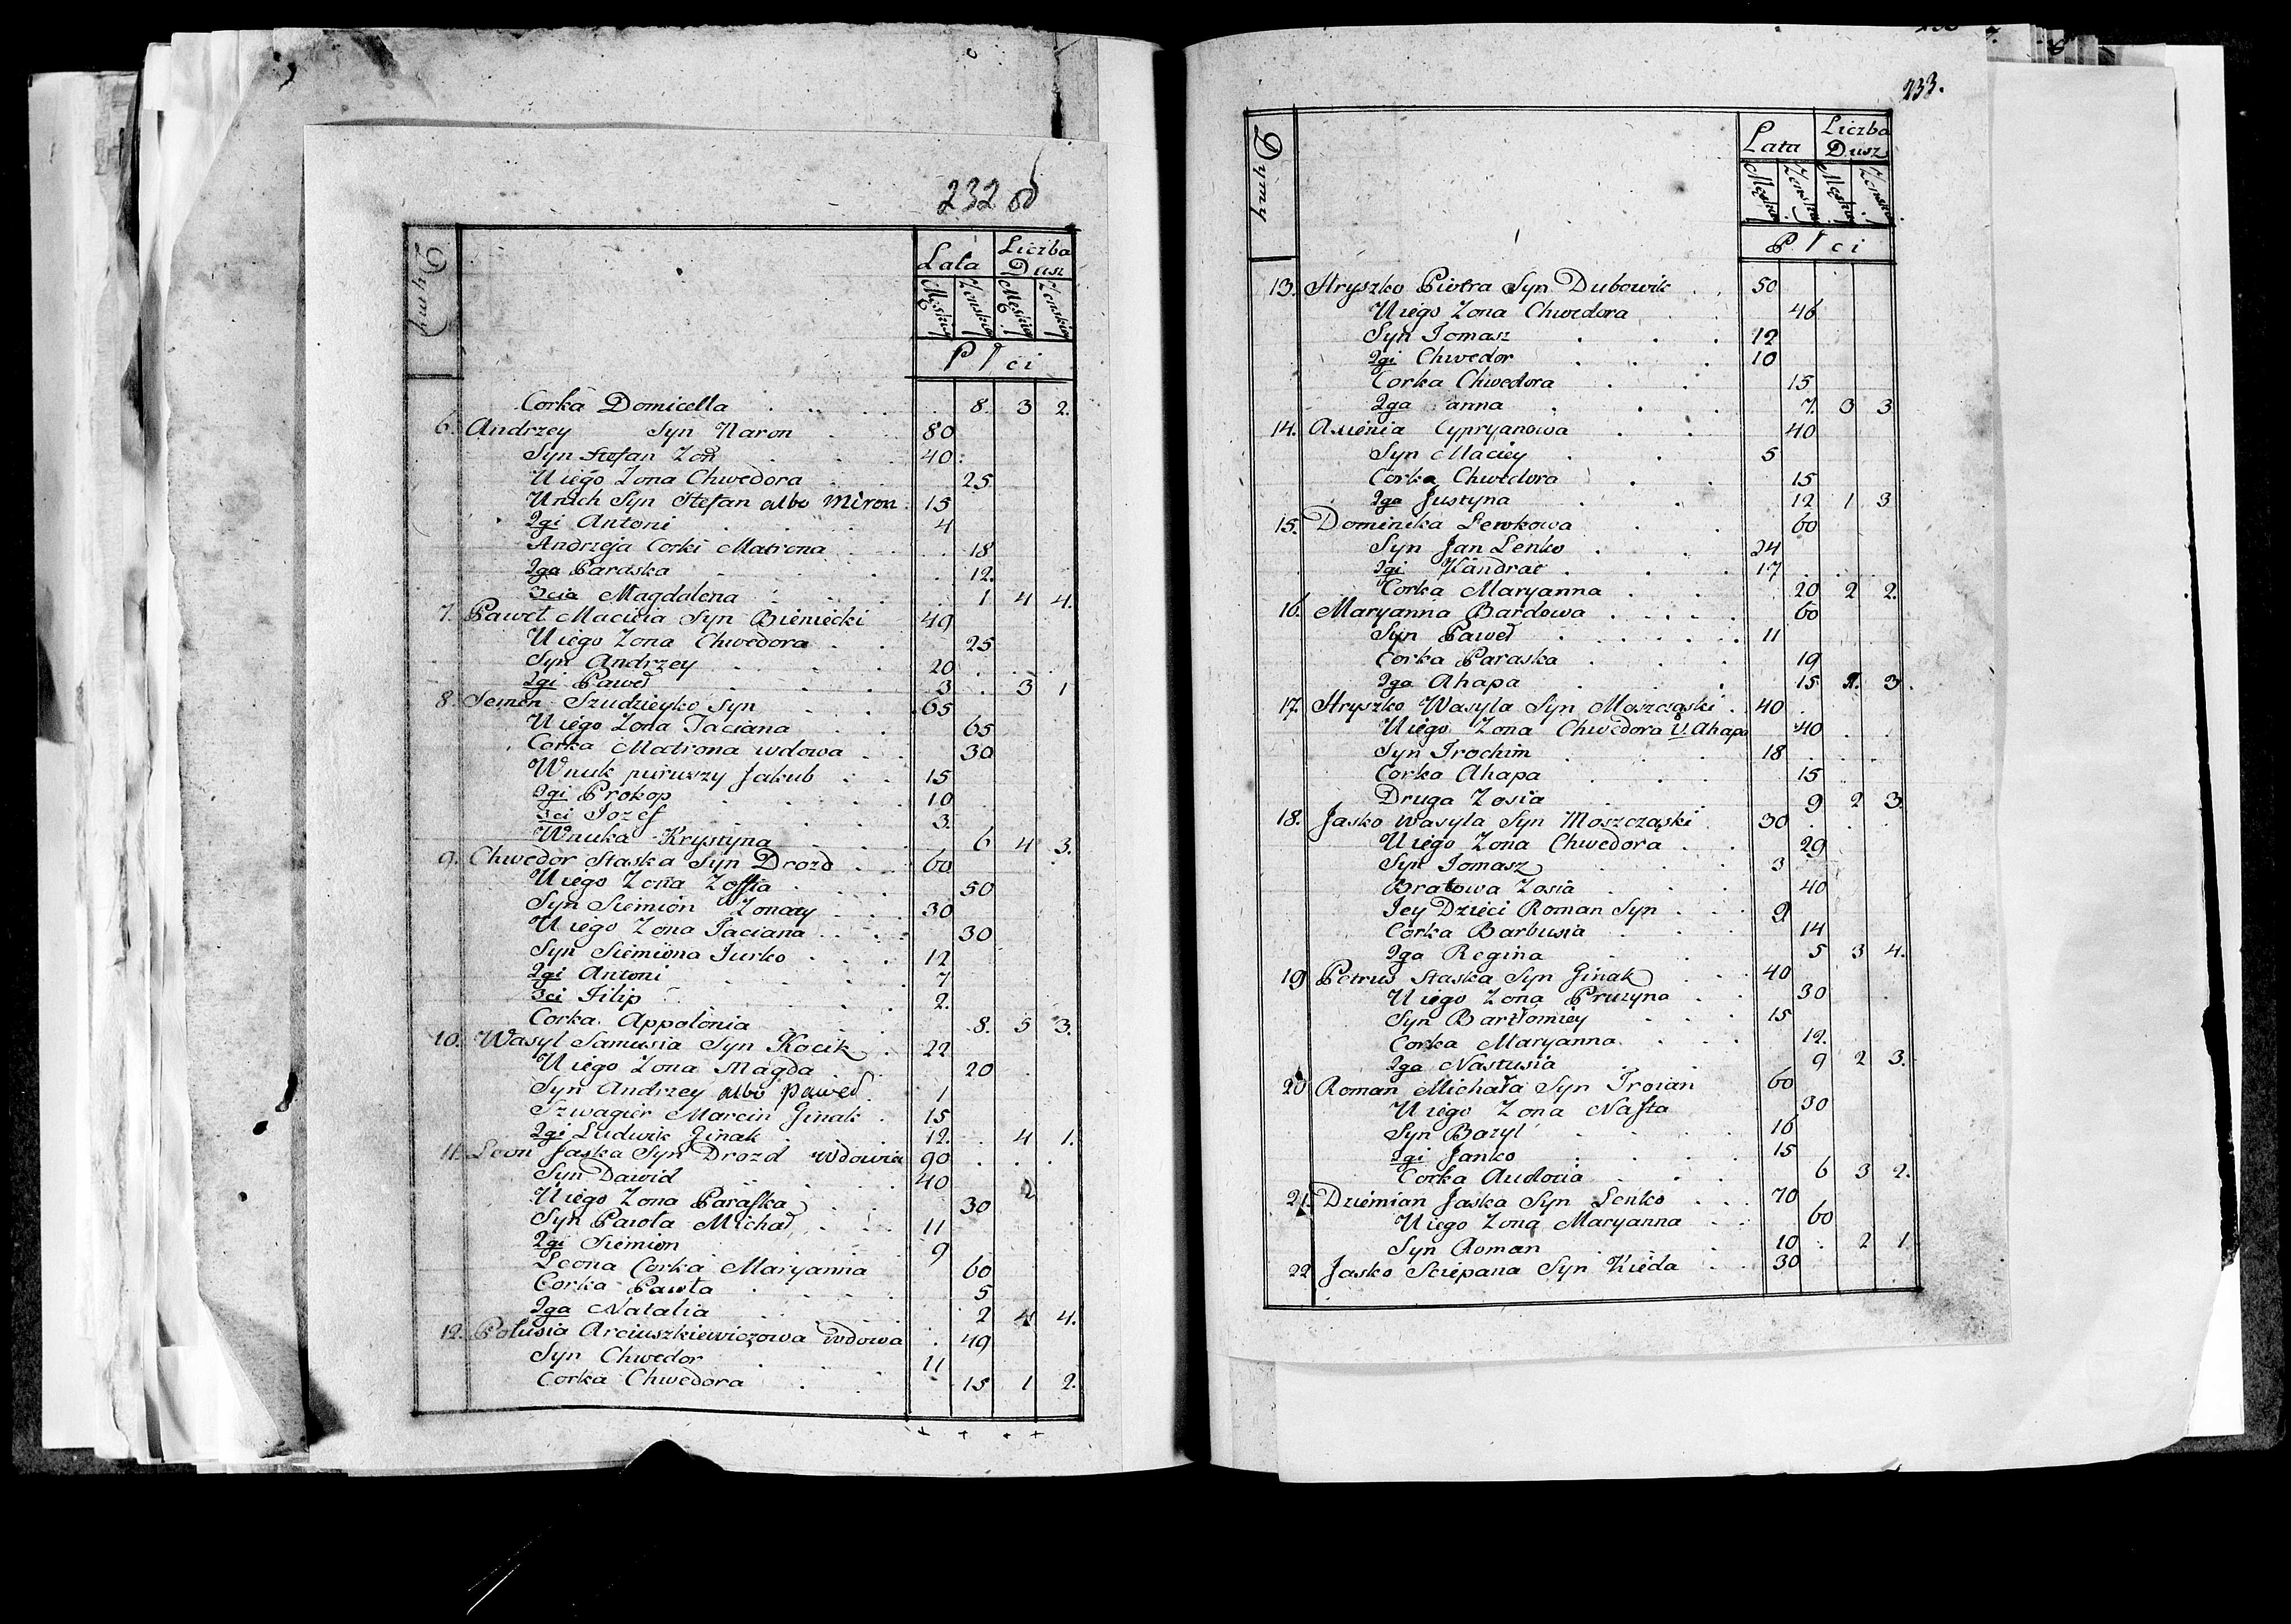 232 od
Dymy
Lata Liczba Dusz
Męskiey Zenskiey Męskiey Zenskiey
Płci
Corka Domicella 8. 3 2.
6. Andrzey Syn Naron 80
Syn Stefan Zon 40
U iego Zona Chwedora 25
Unich Syn Stefan albo Miron 15
2gi Antoni 4
Andrzeja Corki Matrona 18
2ga Paraska 12.
3cia Magdalena 1 4 4.
7. Paweł Macieia Syn Bieniecki 49
U iego Zona Chwedora 25
Syn Andrzey 20
2gi Paweł 3 3 1
8. Semen Szudzieyko Syn 65
U iego Zona Taciana 65
Corka Matrona wdowa 30
Wnuk pierwszy Jakub 15
2gi Prokop 10
3ci Jozef 3.
Wnuka Krystyna 6 4 3.
9. Chwedor Staska Syn Drozd 60
U iego Zona Zoffia 50
Syn Siemion Zonaty 30
U iego Zona Taciana 30
Syn Siemiona Jurko 12
2gi Antoni 7
3ci Filip 2.
Corka Appolonia 8. 5 3.
10. Wasyl Samusia Syn Kocik 22
U iego Zona Magda 20
Syn Andrzey albo Paweł 1
Szwagier Marcin Ginak 15
2gi Ludwik Ginak 12. 4 1.
11. Leon Jaska Syn Drozd wdowiec 90
Syn Dawid 40
U iego Zona Paraska 30
Syn Pawła Michał 11
2gi Siemion 9
Leona Corka Maryanna 60
Corka Pawła 5
2ga Natalia 2 4 4.
12. Polusia Arciuszkiewiczowa wdowa 49
Syn Chwedor 11
Corka Chwedora 15 1 2.
233.
Dymy
Lata Liczba Dusz
Męskiey Zenskiey Męskiey Zenskiey
Płci
13. Hryszko Piotra Syn Dubowik 50
U iego Zona Chwedora 46
Syn Tomasz 12
2gi Chwedor 10
Corka Chwedora 15
2ga anna 7. 3 3
14. Axienia Cypryanowa 40
Syn Maciey 5
Corka Chwedora 15
2ga Justyna 12 1 3
15. Dominika Lewkowa 60
Syn Jan Lenko 24
2gi Kandrat 17
Corka Maryanna 20 2 2.
16. Maryanna Bardowa 60
Syn Paweł 11
Corka Paraska 19
2ga Ahapa 15 1. 3.
17. Hryszko Wasyla Syn Moszcząski 40
U iego Zona Chwedora V. Ahapa 40
Syn Trochim 18
Corka Ahapa 15
Druga Zosia 9 2 3.
18. Jasko Wasyla Syn Moszcząski 30
U iego Zona Chwedora 29
Syn Tomasz 3
Bratowa Zosia 40
Jey Dzieci Roman Syn 9
Corka Barbusia 14
2ga Regina 5 3 4.
19 Petrus Staska Syn Ginak 40
U iego Zona Pruzyna 30
Syn Bartłomiey 15
Corka Maryanna 12.
2ga Nastusia 9 2 3.
20 Roman Michała Syn Troian 60
U iego Zona Nasta 30
Syn Bazyl 16
2gi Janko 15
Corka Audocia 6 3 2.
21. Dziemian Jaska Syn Lenko 70
U iego Zona Maryanna 60
Syn Roman 10 2 1
22 Jasko Sciepana Syn Kieda 30